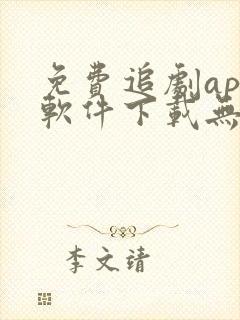 免費追劇ap
軟件下載無
李文靖